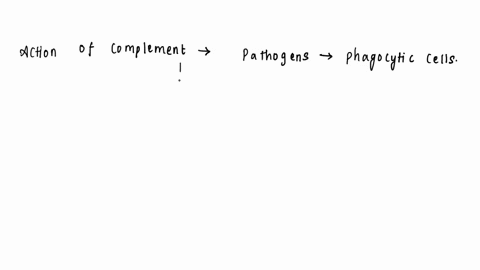 Action of complement → Pathogens → phagocytic cells.